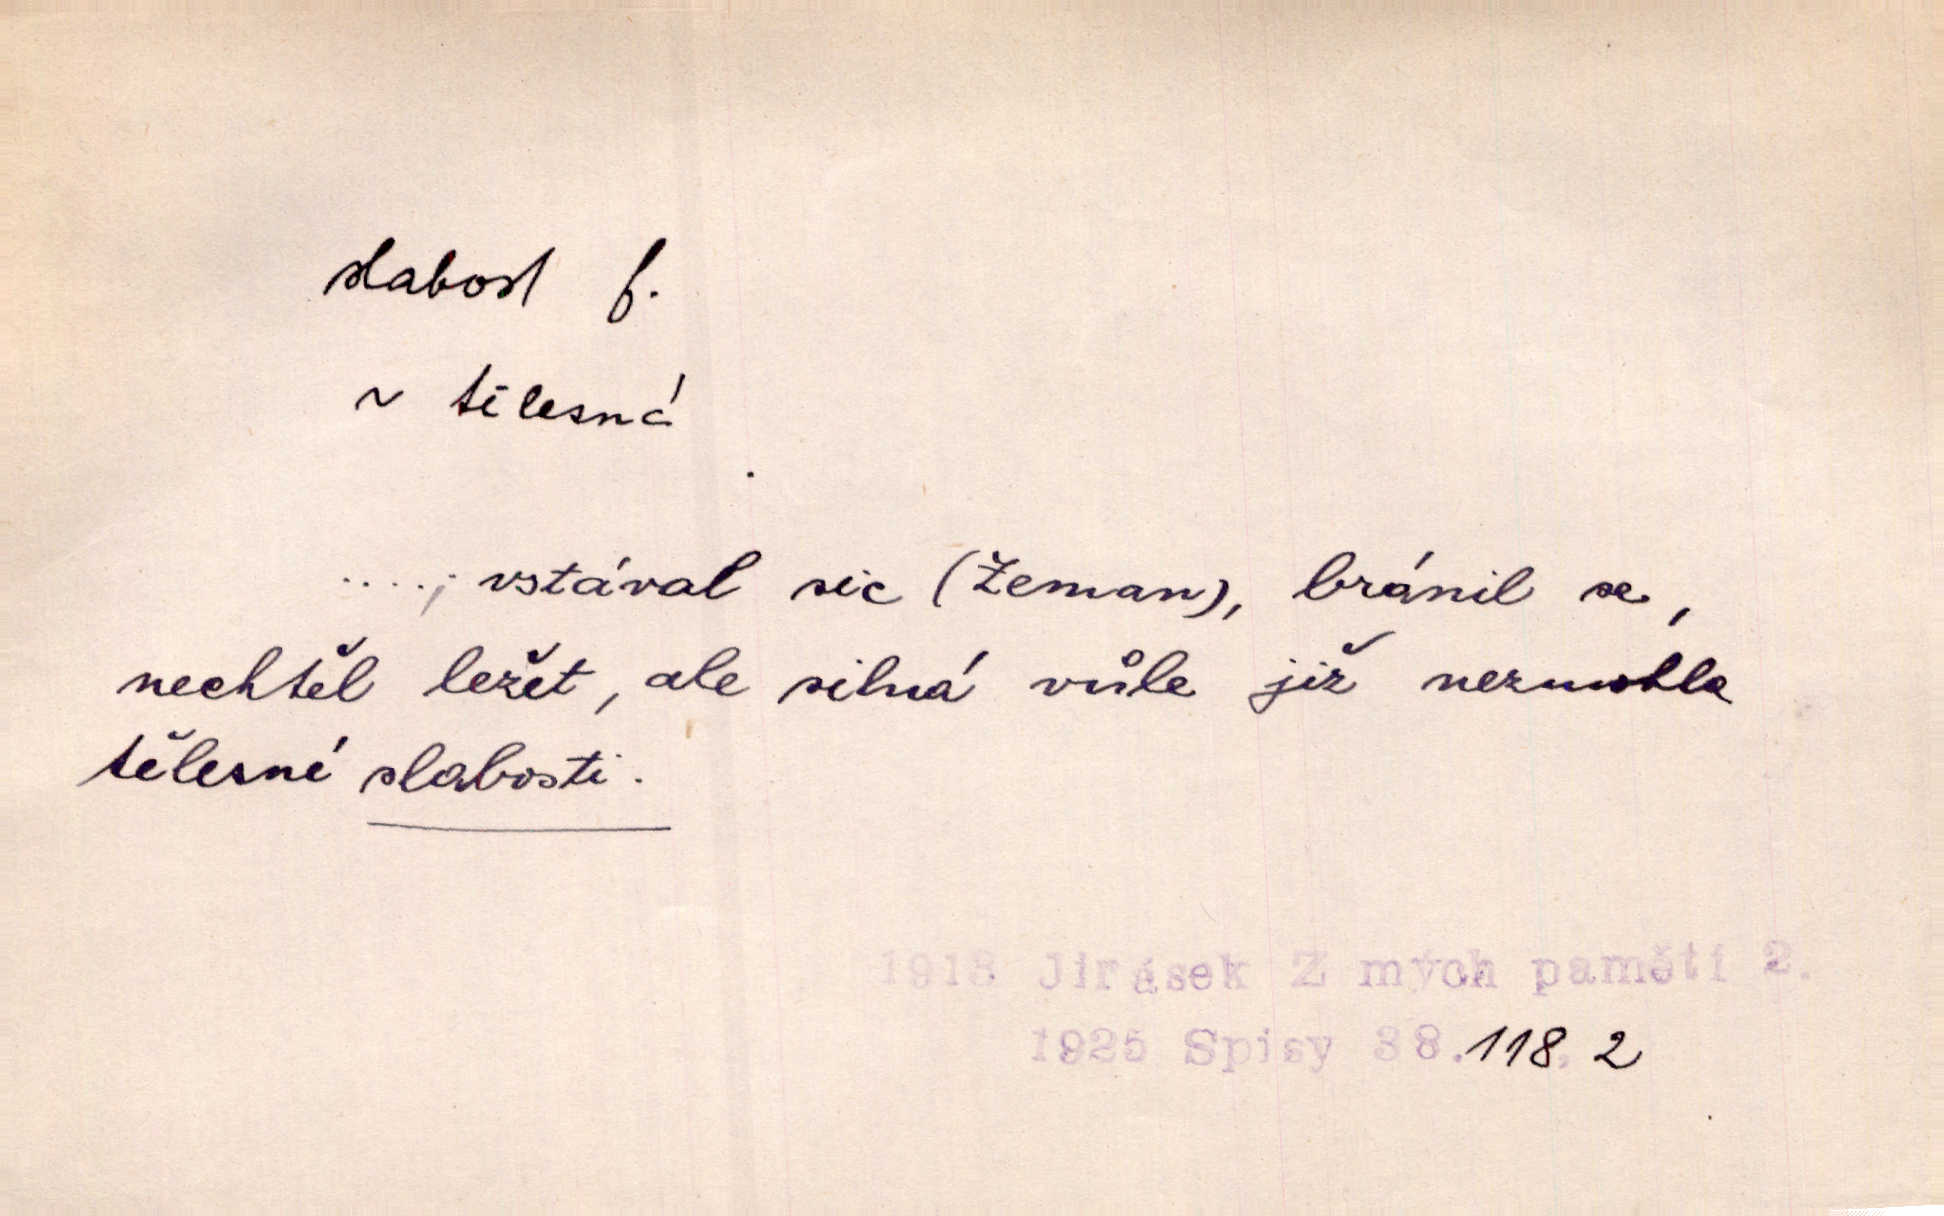 slabost f.
~ tělesná
....; vstával sic (Žeman), bránil se,
nechtěl ležet, ale silná vůle již nezmohla
tělesné slabosti.
1918 Jirásek Z mých pamětí 2.
1925 Spisy 38.118, 2